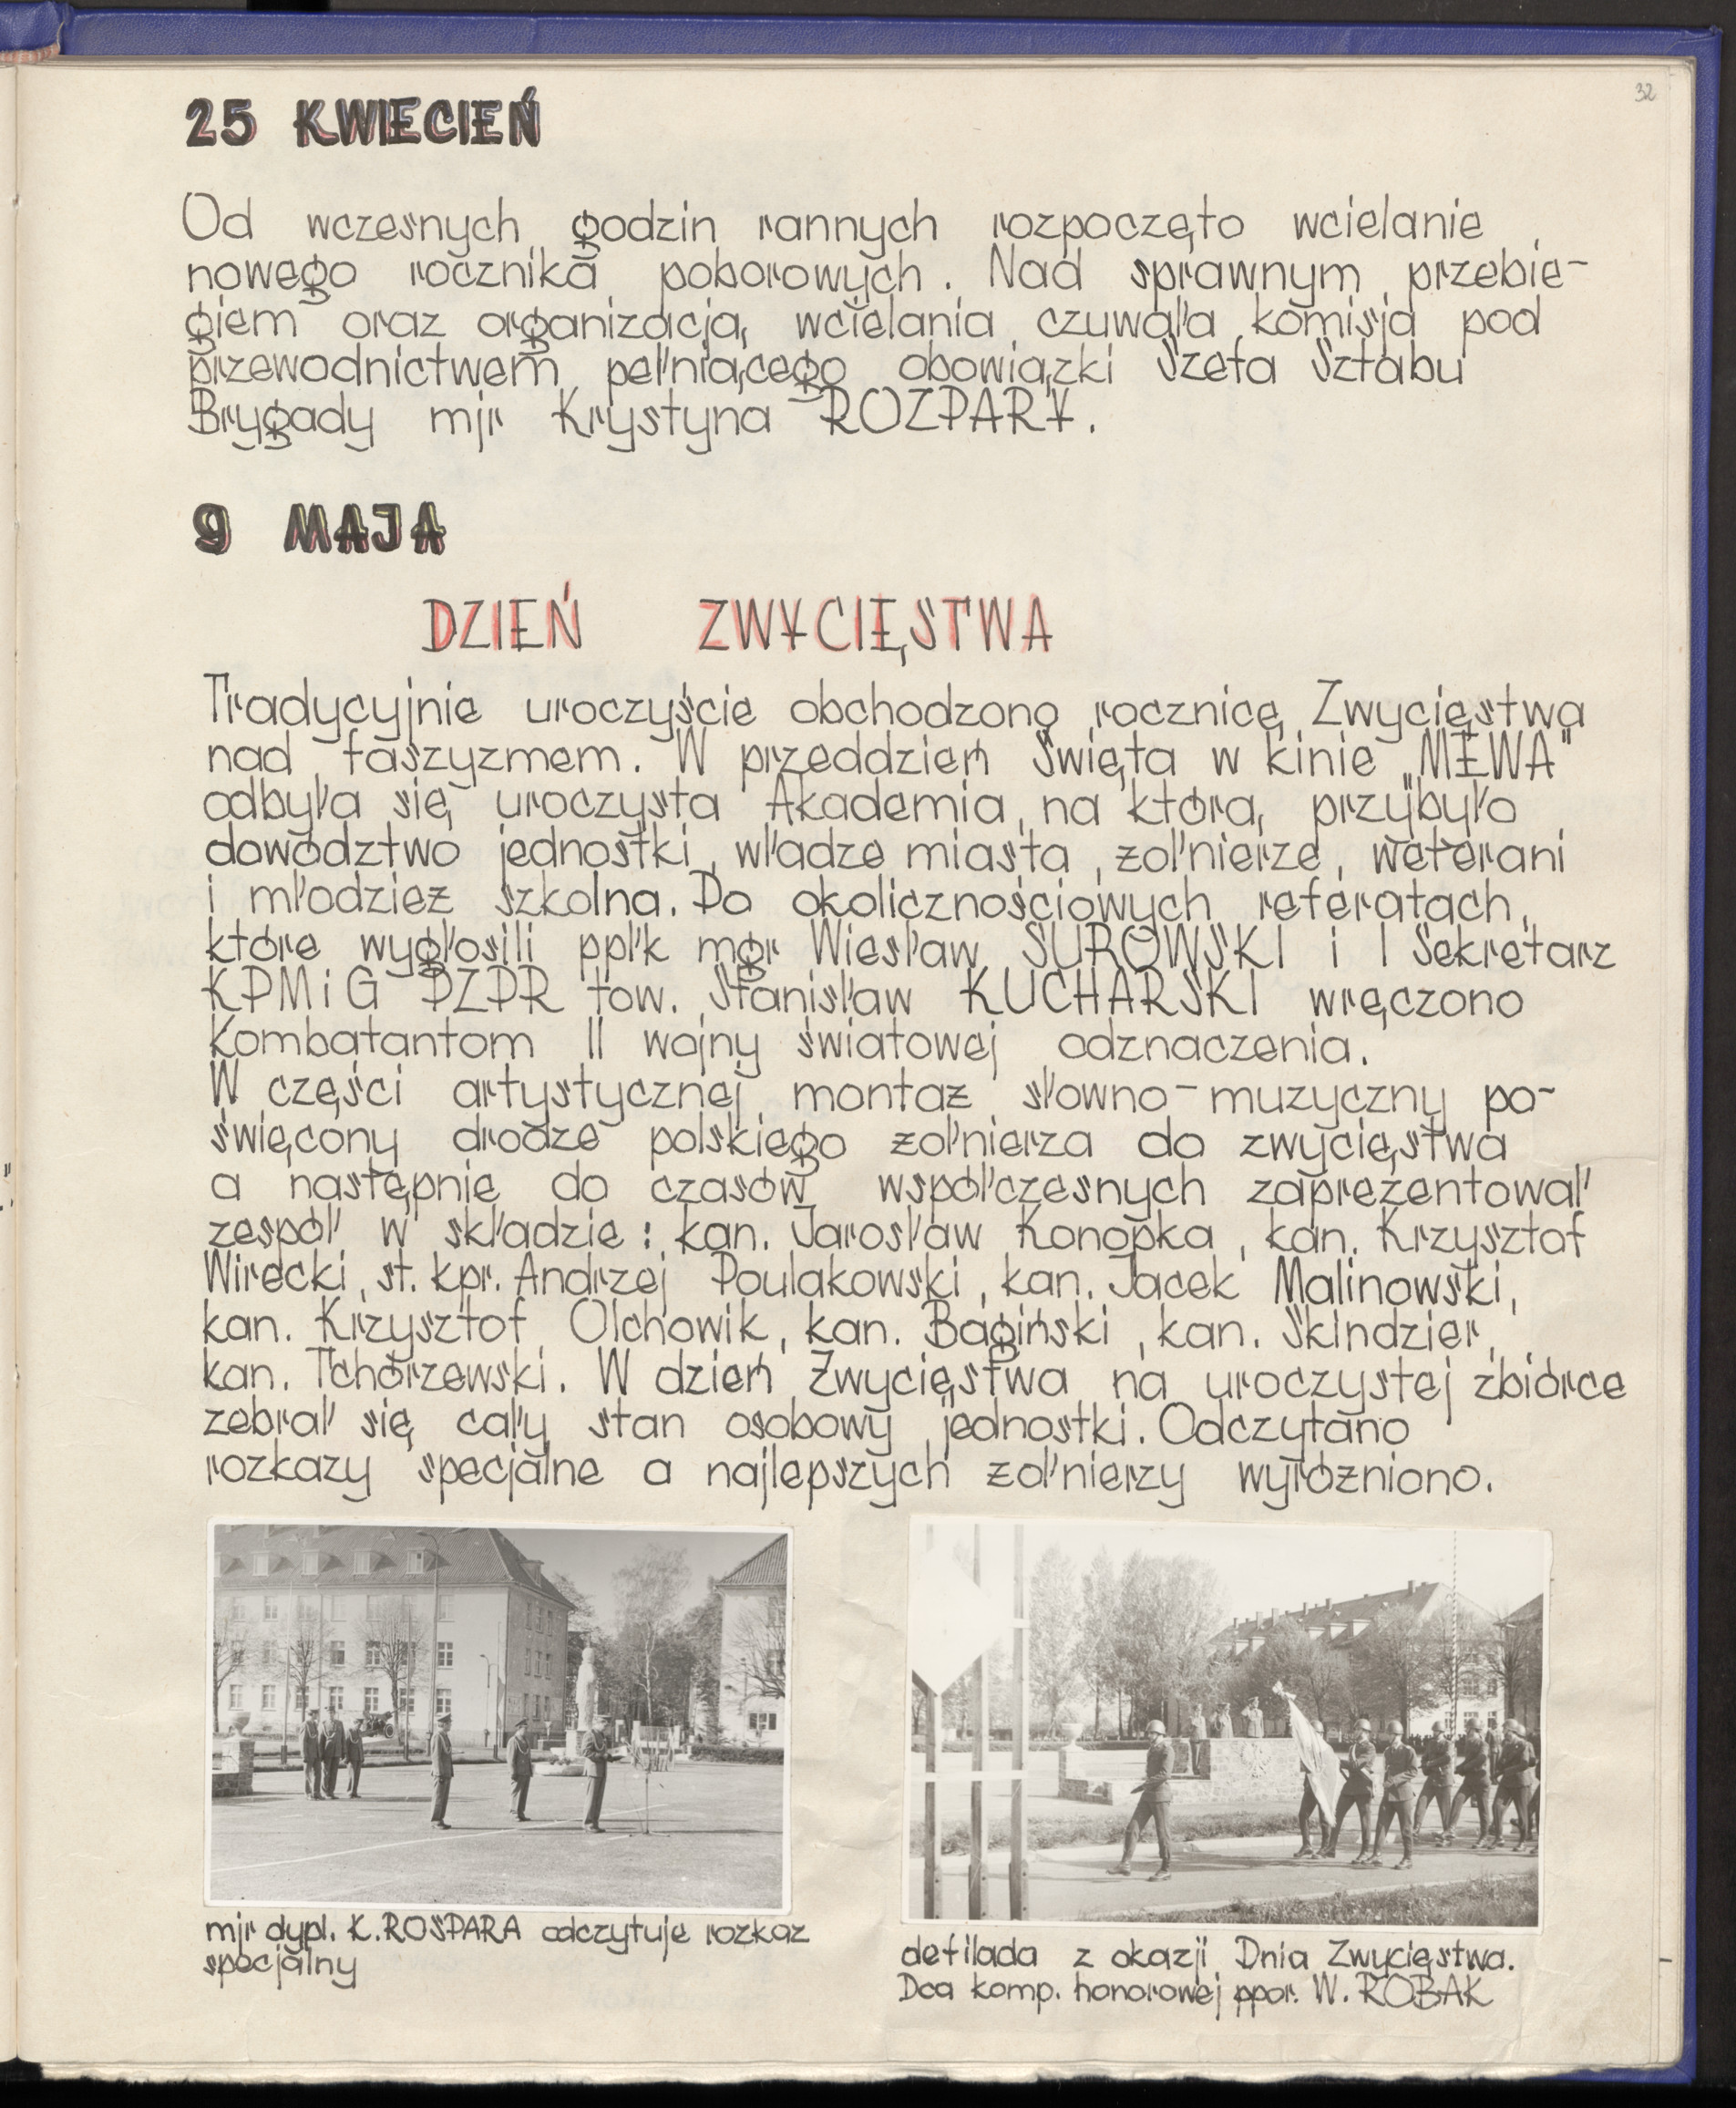 32
25 KWIECIEŃ
Od wczesnych godzin rannych rozpoczęto wcielanie
nowego rocznika poborowych. Nad sprawnym przebie-
giem oraz organizacją wcielania czuwała komisja pod
przewodnictwem pełniącego obowiązki Szefa Sztabu
Brygady mjr Krystyna ROZPARY.
9 MAJA
DZIEŃ ZWYCIĘSTWA
Tradycyjnie uroczyście obchodzono rocznicę Zwycięstwa
nad faszyzmem. W przeddzień Święta w kinie „MEWA"
odbyła się uroczysta Akademia, na którą przybyło
dowództwo jednostki, władze miasta, żołnierze, weterani
i młodzież szkolna. Po okolicznościowych referatach,
które wygłosili ppłk mgr Wiesław SUROWSKI i I Sekretarz
KPMiG PZPR tow. Stanisław KUCHARSKI wręczono
Kombatantom II wojny światowej odznaczenia.
W części artystycznej montaż słowno-muzyczny po-
święcony drodze polskiego żołnierza do zwycięstwa
a następnie do czasów współczesnych zaprezentował
zespół w składzie: kan. Jarosław Konopka, kan. Krzysztof
Wirecki, st. kpr. Andrzej Poulakowski, kan. Jacek Malinowski,
kan. Krzysztof Olchowik, kan. Bagiński, kan. Skindzier,
kan. Tchórzewski. W dzień Zwycięstwa na uroczystej zbiórce
zebrał się cały stan osobowy jednostki. Odczytano
rozkazy specjalne a najlepszych żołnierzy wyróżniono.
mjr dypl. K. ROSPARA odczytuje rozkaz
specjalny
defilada z okazji Dnia Zwycięstwa.
Dca komp. honorowej ppor. W. ROBAK